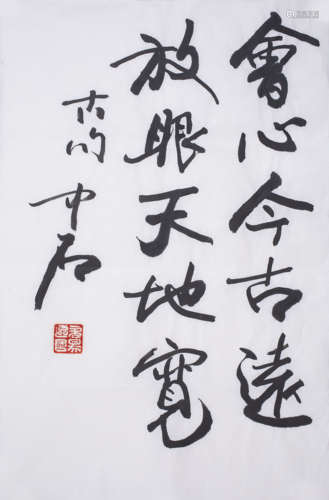 會心今古遠
放眼天地寬
古句
中石